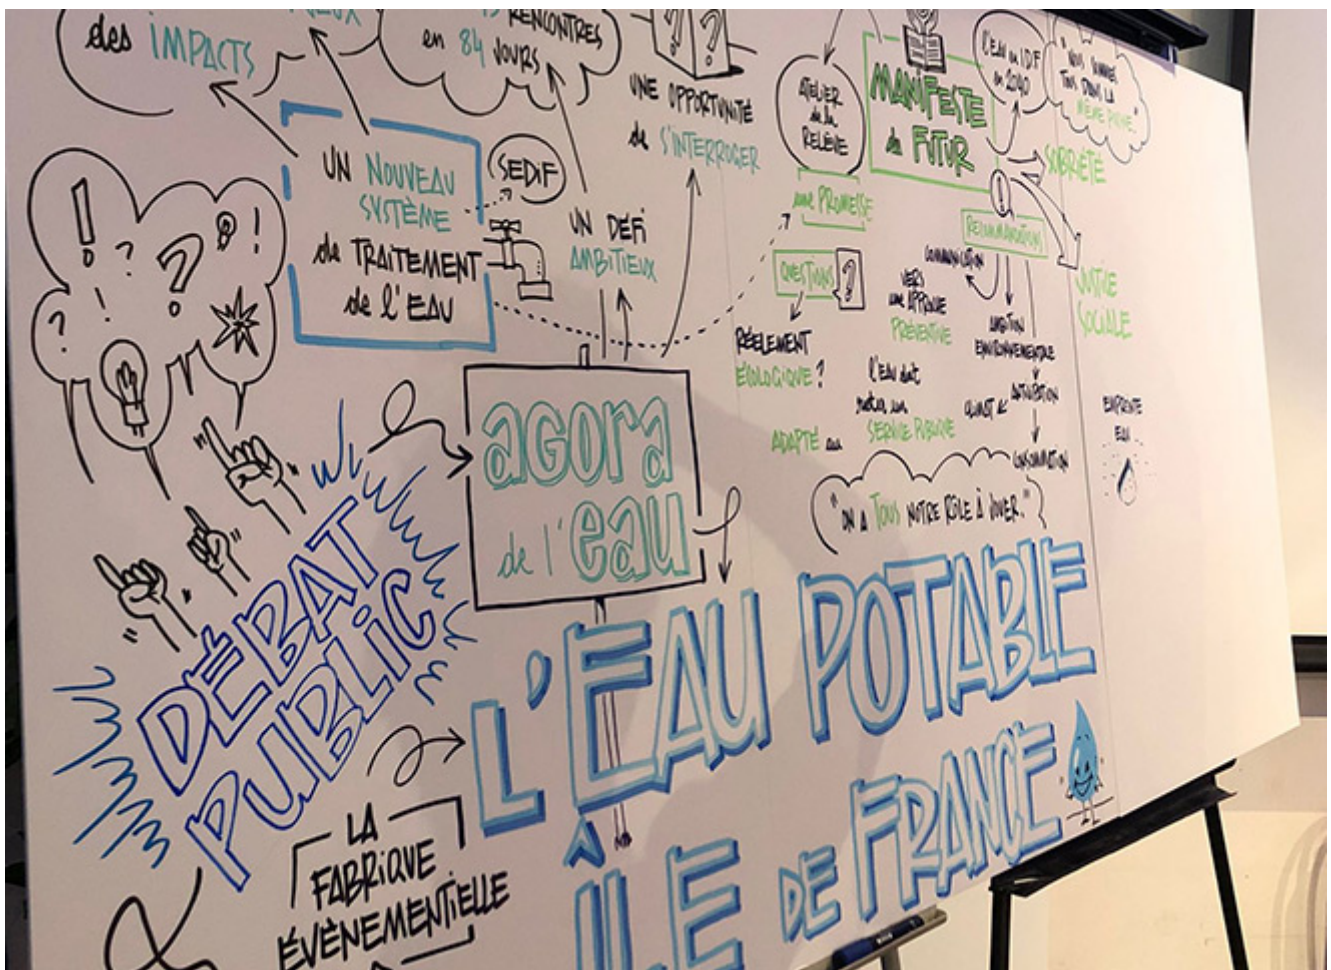 des IMPACTS
RENCONTRES
en 84
JOURS
UNE OPPORTUNITÉ
de S'INTERROGER
ATELIER
de la
RELÈVE
MANIFESTE
du FUTUR
L'EAU en IDF
en 2040
"NOUS SOMMES
TOUS DANS LA
SOBRIÉTÉ
une PROMESSE
RECOMMANDATIONS
UN NOUVEAU
SYSTÈME
de TRAITEMENT
de l'EAU
SEDIF
UN DÉFi
AMBITIEUX
QUESTIONS
?
RÉELEMENT
ÉCOLOGIQUE ?
ADAPTÉ au
VERS
une APPROCHE
PRÉVENTIVE
l'EAU doit
rester un
SERVICE PUBLIQUE
COMMUNICATION
AMBITION
ENVIRONNEMENTALE
CLIMAT
CONSOMMATION
JUSTICE
SOCIALE
EMPREINTE
EAU
"ON A TOUS NOTRE RÔLE À JOUER."
agora
de l'eau
DÉBAT
PUBLiC
L'EAU POTABLE
ÎLE DE FRANCE
LA
FABRiQUE
ÉVÈNEMENTiELLE